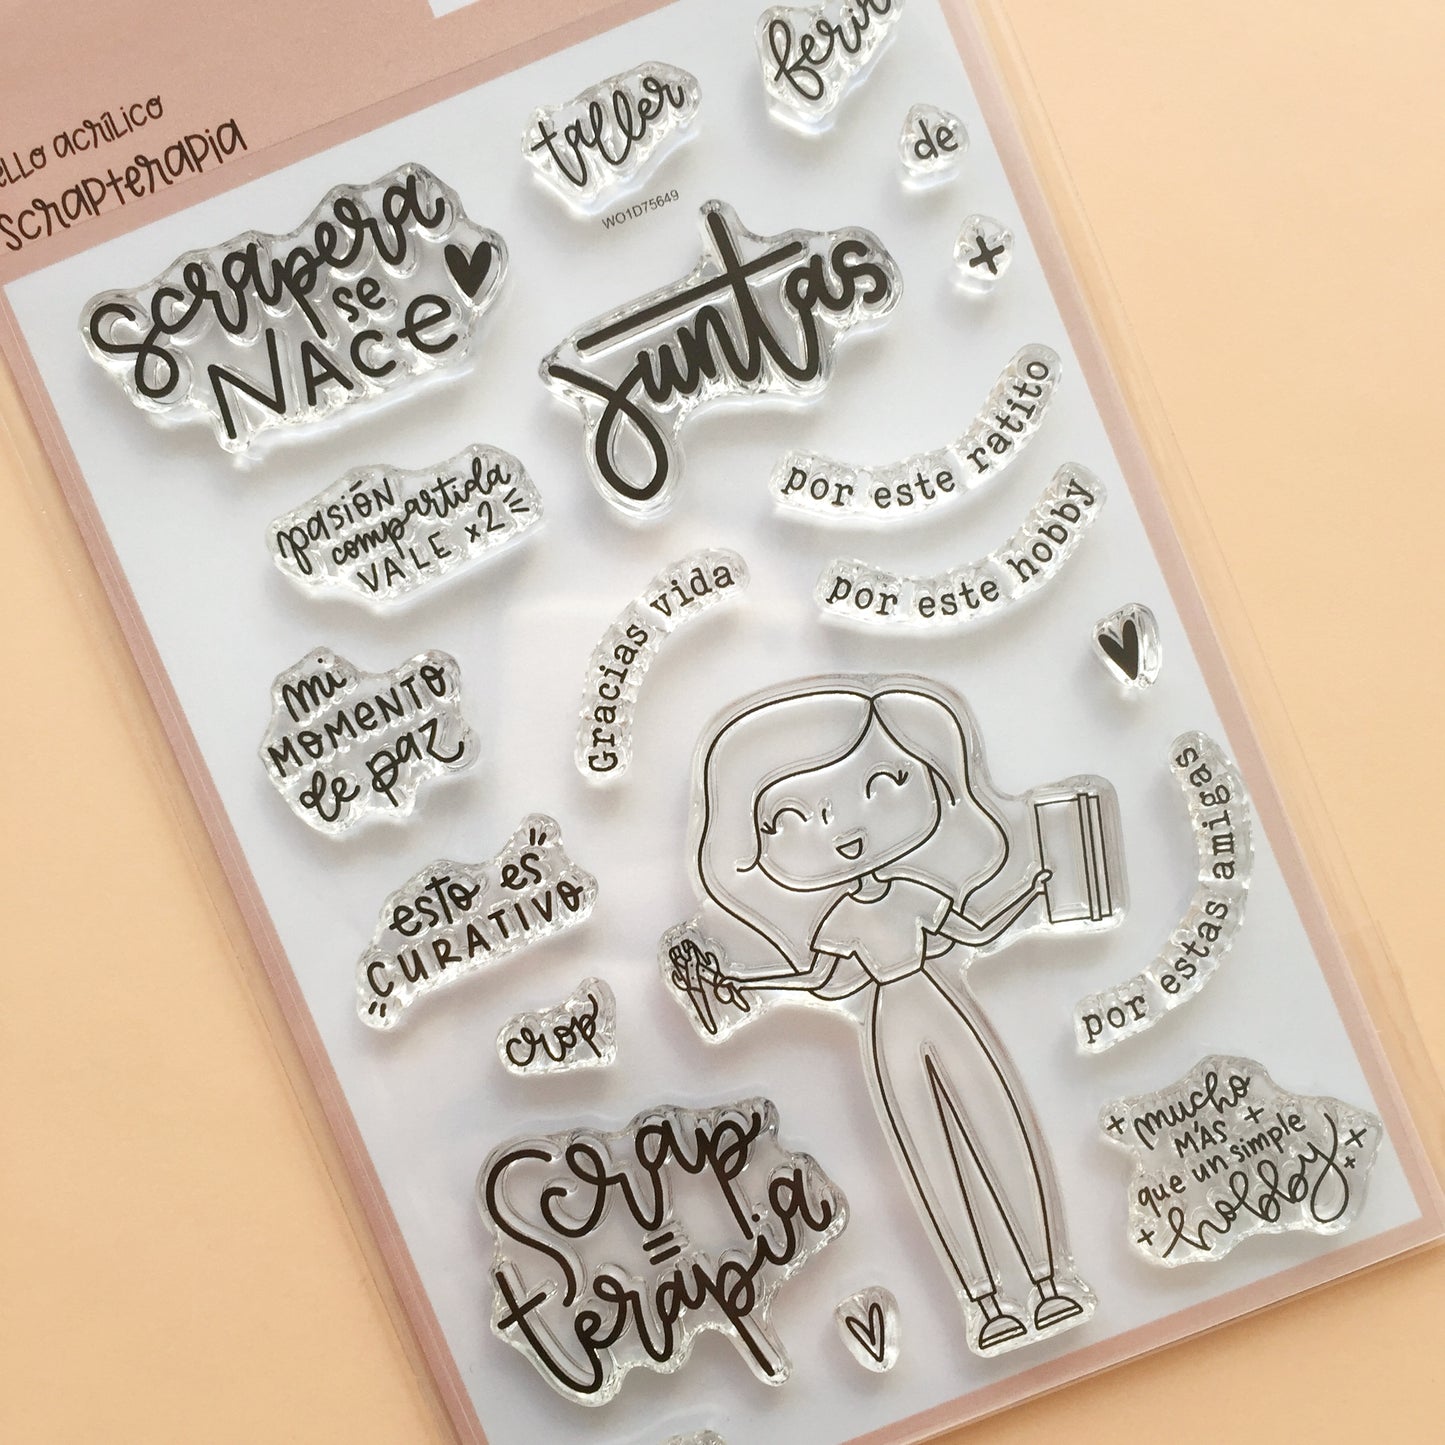 acrílico
scrapterapia
taller
de
WO1D75649
+
scrapera
se
NACE
Juntas
por este ratito
por este hobby
pasión
compartida
VALE x2
Gracias vida
mi
MOMENTO
de paz
esto es
"CURATIVO"
por estas amigas
crop
Scrap
=
terapia
+ mucho
MÁS +
que un simple
+ hobby +